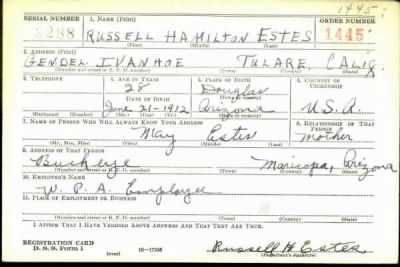 1445
SERIAL NUMBER 1. NAME (Print) ORDER NUMBER
2288 RUSSELL HAMILTON ESTES 1445
(First) (Middle) (Last)
2. ADDRESS (Print)
GENDEL IVANHOE TULARE, CALIF.
(Number and street or R. F. D. number) (Town) (County) (State)
3. TELEPHONE 4. AGE IN YEARS 5. PLACE OF BIRTH 6. COUNTRY OF CITIZENSHIP
28 Douglas
DATE OF BIRTH (Town or county)
June 21-1912 Arizona U.S.A.
(Exchange) (Number) (Mo.) (Day) (Yr.) (State or country)
7. NAME OF PERSON WHO WILL ALWAYS KNOW YOUR ADDRESS 8. RELATIONSHIP OF THAT PERSON
May Estes Mother
(Mr., Mrs., Miss) (First) (Middle) (Last)
9. ADDRESS OF THAT PERSON
Buckeye Maricopa, Arizona
(Number and street or R. F. D. number) (Town) (County) (State)
10. EMPLOYER'S NAME
W. P. A. Employee
11. PLACE OF EMPLOYMENT OR BUSINESS
(Number and street or R. F. D. number) (Town) (County) (State)
I AFFIRM THAT I HAVE VERIFIED ABOVE ANSWERS AND THAT THEY ARE TRUE.
REGISTRATION CARD
D. S. S. Form 1 (over) 16-17105 Russell H. Estes
(Registrant's signature)